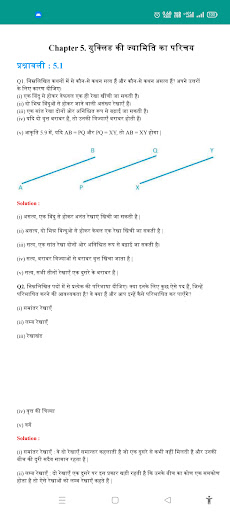 Chapter 5. युक्लिड की ज्यामिति का परिचय
प्रश्नावली : 5.1
Q1. निम्नलिखित कथनों में से कौन-से कथन सत्य हैं और कौन-से कथन असत्य हैं? अपने उत्तरों
के लिए कारण दीजिए।
(i) एक बिंदु से होकर केवल एक ही रेखा खींची जा सकती है।
(ii) दो भिन्न बिंदुओं से होकर जाने वाली असंख्य रेखाएँ हैं।
(iii) एक सांत रेखा दोनों ओर अनिश्चित रूप से बढ़ाई जा सकती है।
(iv) यदि दो वृत्त बराबर हैं, तो उनकी त्रिज्याएँ बराबर होती हैं।
(v) आकृति 5.9 में, यदि AB = PQ और PQ = XY, तो AB = XY होगा |
B Q Y
A P X
Solution :
(i) असत्य, एक बिंदु से होकर अनंत रेखाएं खिंची जा सकती है |
(ii) असत्य, दो भिन्न बिन्दुओं से होकर केवल एक रेखा खिंची जा सकती है |
(iii) सत्य, एक सांत रेखा दोनों ओर अनिश्चित रूप से बढ़ाई जा सकती है।
(iv) सत्य, बराबर त्रिज्याओं से बराबर वृत्त खिंचा जाता है |
(v) सत्य, सभी तीनों रेखाएँ एक दुसरे के बराबर है |
Q2. निम्नलिखित पदों में से प्रत्येक की परिभाषा दीजिए। क्या इनके लिए कुछ ऐसे पद हैं, जिन्हें
परिभाषित करने की आवश्यकता है? वे क्या हैं और आप इन्हें कैसे परिभाषित कर पाएँगे?
(i) समांतर रेखाएँ
(ii) लम्ब रेखाएँ
(iii) रेखाखंड
(iv) वृत्त की त्रिज्या
(v) वर्ग
Solution :
(i) समांतर रेखाएँ : वे दो रेखाएँ समान्तर कहलाती है जो एक दुसरे से कभी नहीं मिलती है और उनकी
बीच की दुरी सदैव समान रहता है |
(ii) लम्ब रेखाएँ : दो रेखाएँ एक दुसरे पर इस प्रकार खड़ी रहती है कि उनके बीच का कोण एक समकोण
होता है तो ऐसे रेखाओं को लम्ब रेखाएँ कहते है |